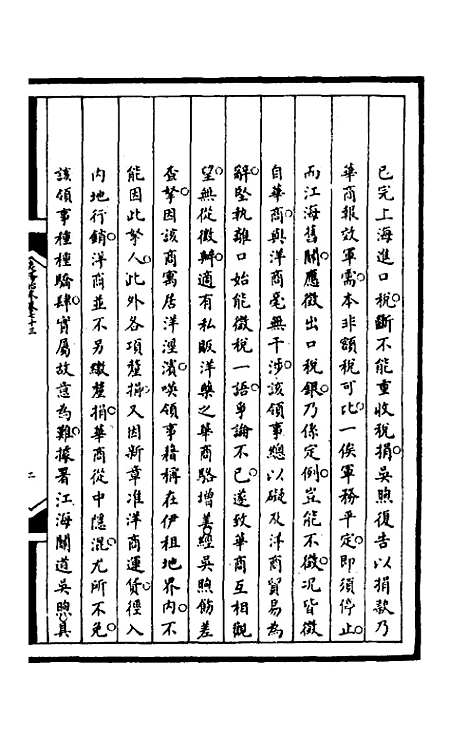 已完上海進口稅。斷不能重收稅捐。吳煦復告以捐款乃
華商報效軍需。本非額稅可比。一俟軍務平定。即須停止。
而江海舊關。應徵出口稅銀。乃係定例。豈能不徵。況皆徵
自華商。與洋商毫無干涉。該領事總以礙及洋商貿易為
辭。堅執離口始能徵稅一語。爭論不已。遂致華商互相觀
望。無從徵辦。適有私販洋藥之華商駱增善。經吳煦飭差
查拏。因該商寓居洋涇濱。嘆領事藉稱在伊租地界內。不
能因此拏人。此外各項釐捐。又因新章准洋商運貨。徑入
內地行銷。洋商並不另繳釐捐。華商從中隱混。尤所不免。
該領事種種驕肆。實屬故意為難。據署江海關道吳煦具
二